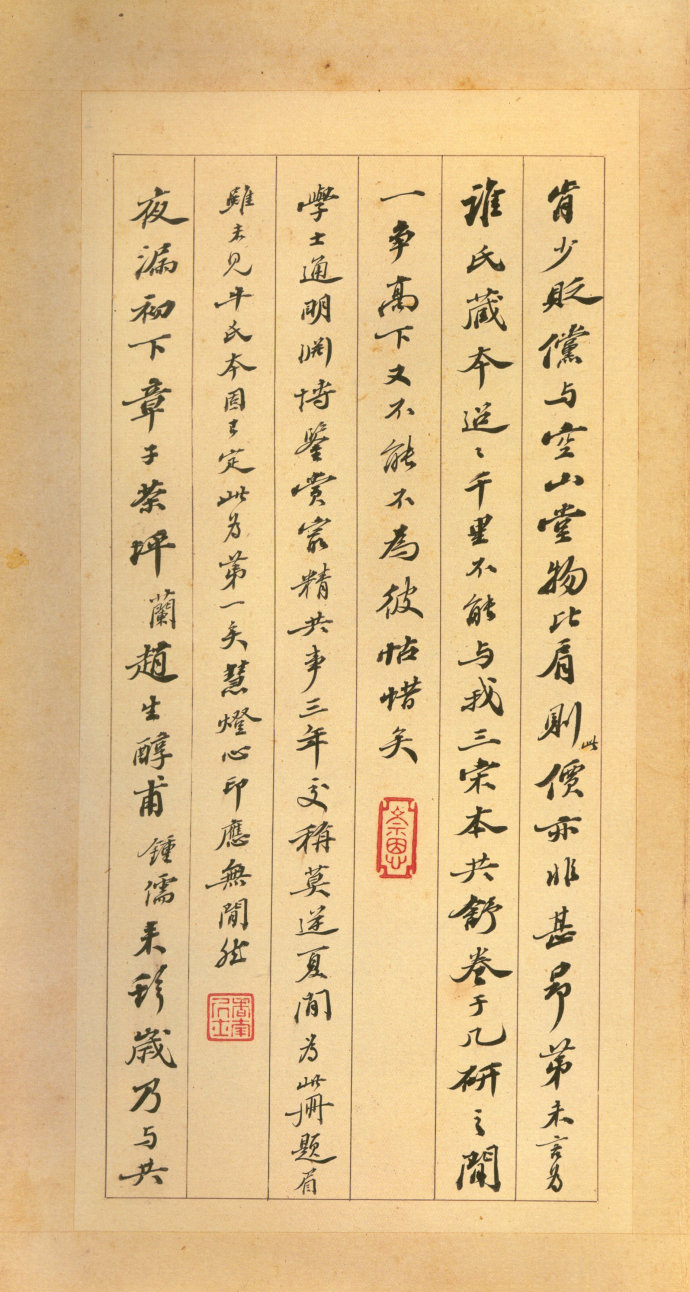 肯少貶儻与空山堂物比肩則此價亦非甚昂第未言為
誰氏藏本迢〻千里不能与我三宋本共舒卷于几研之閒
一爭高下又不能不為彼帖惜矣
學士通明淵博鑒賞家精共事三年交稱莫逆夏閒為此冊題眉
雖未見牛氏本固已定此為第一矣慧燈心印應無閒然
夜漏初下章子荼坪蘭趙生醇甫鍾儒來珍歲乃与共